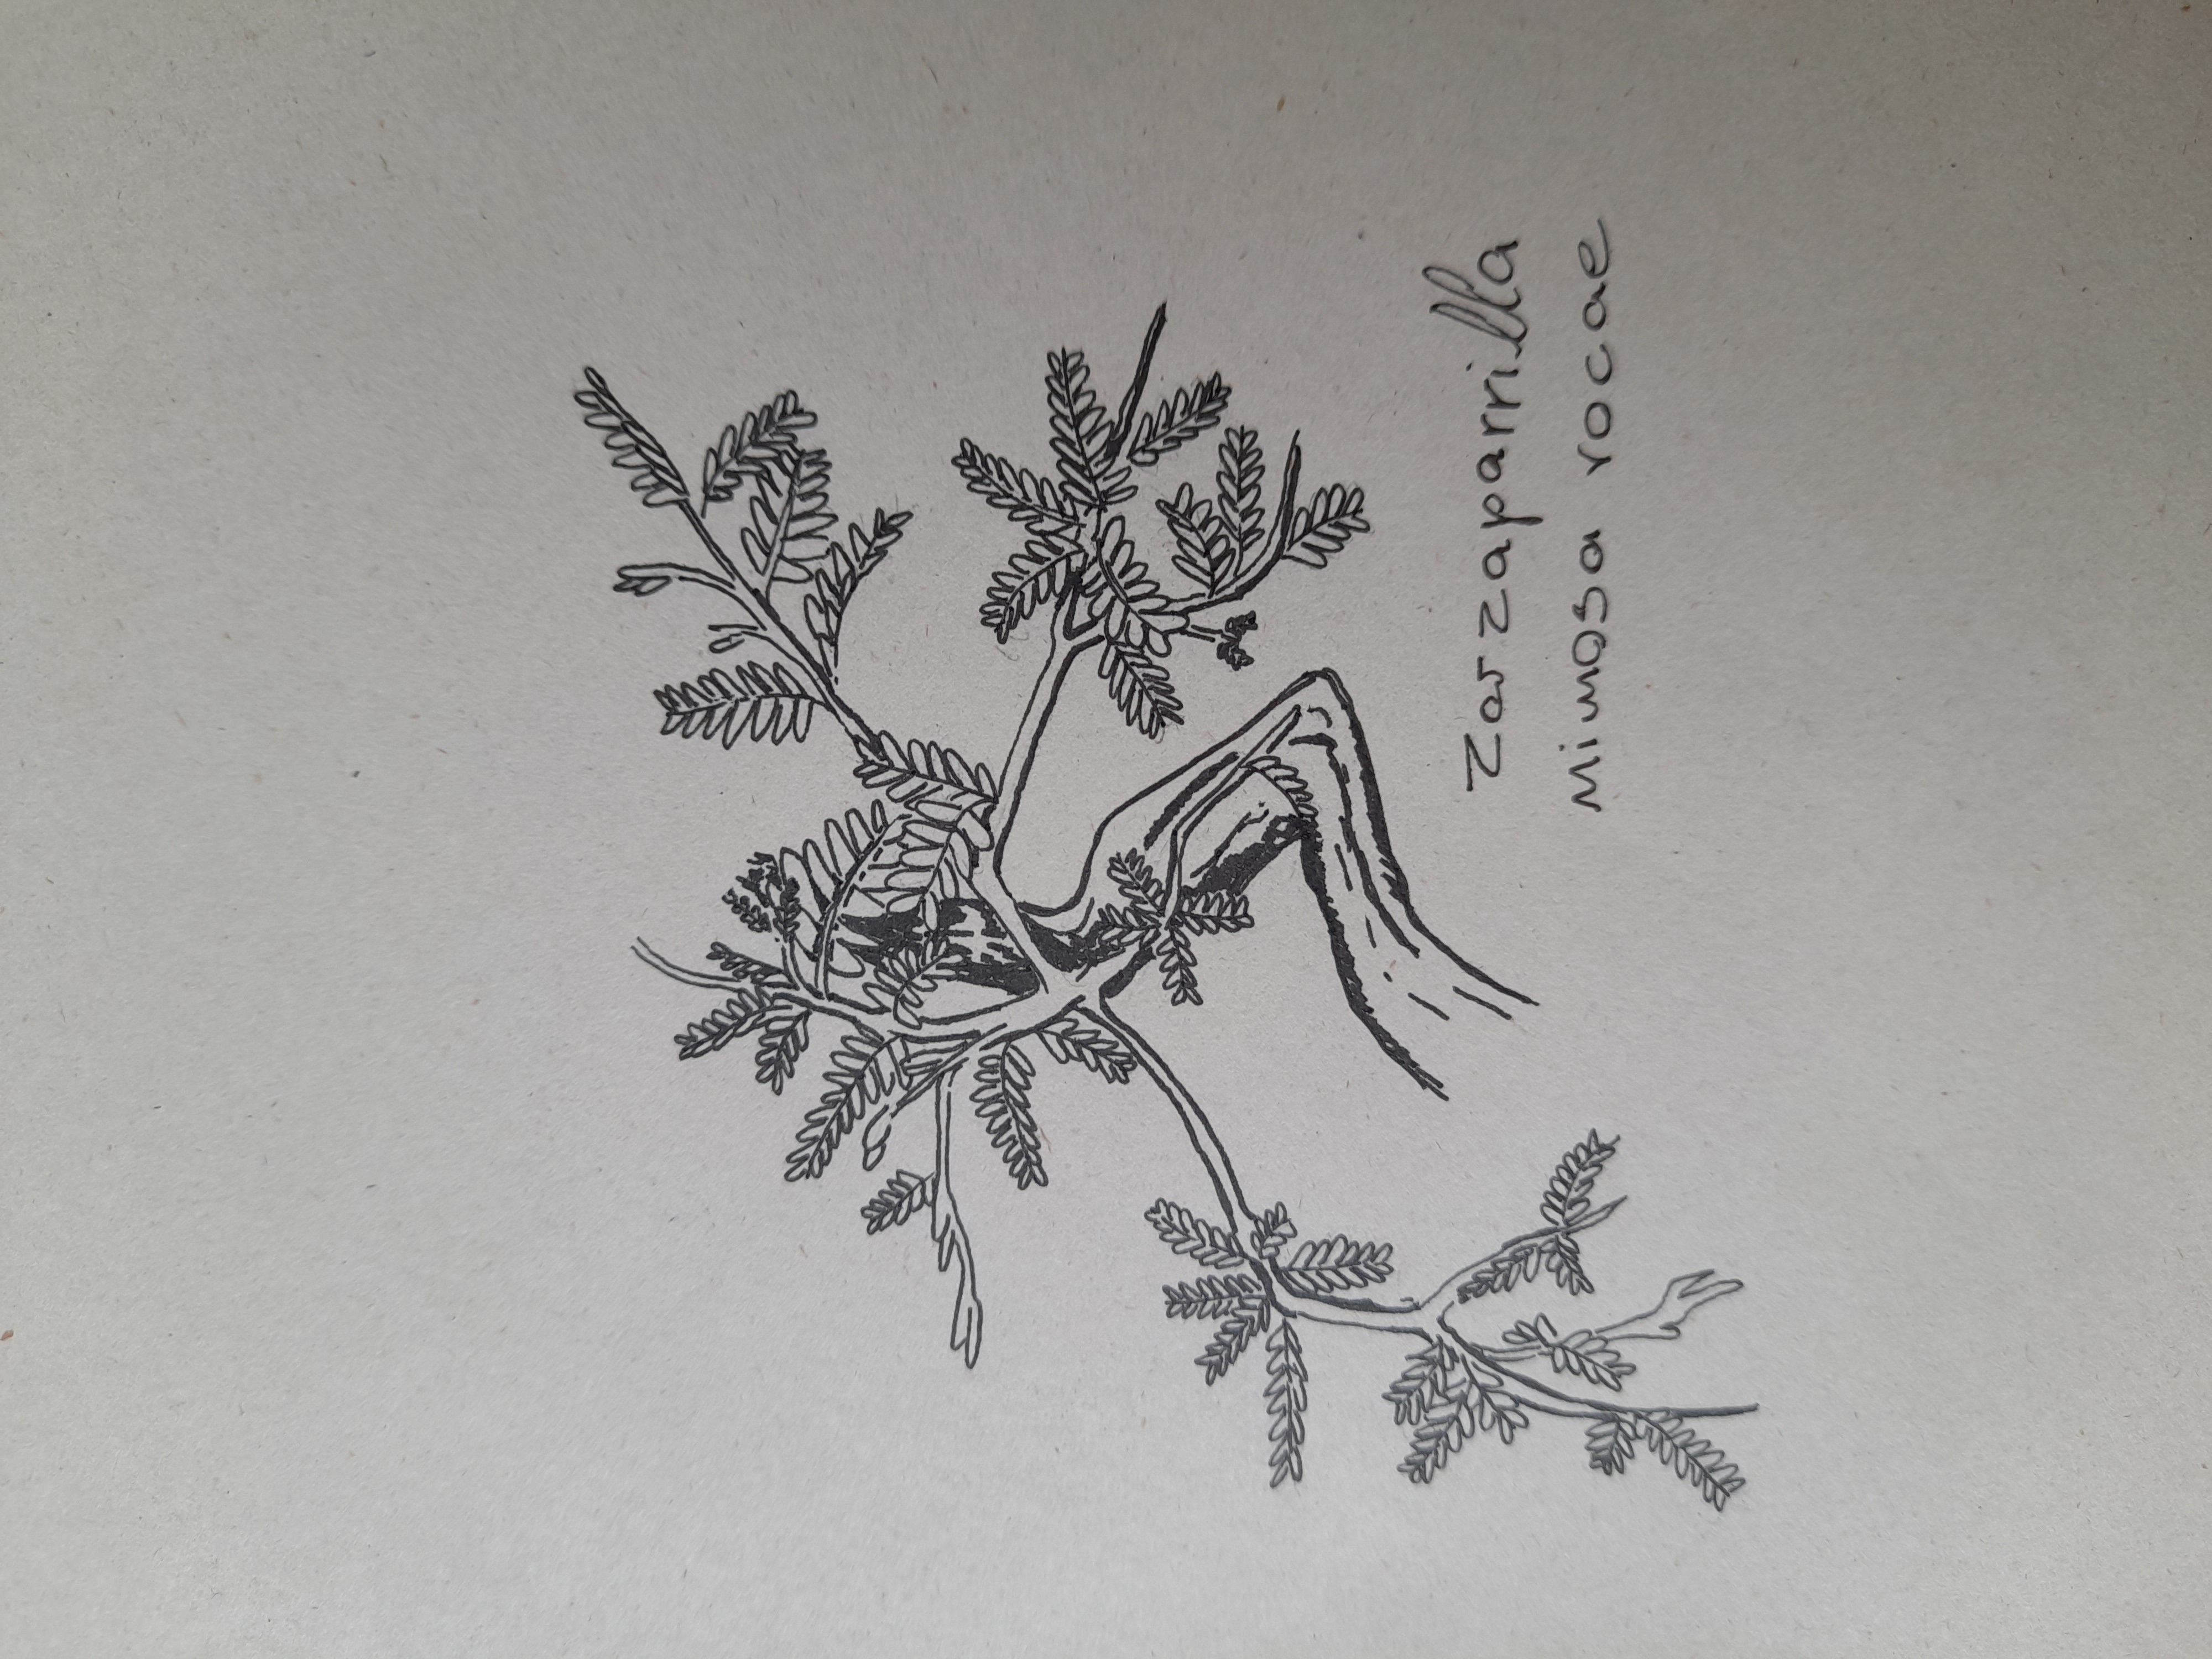 Zarzaparrilla
Mimosa rocae